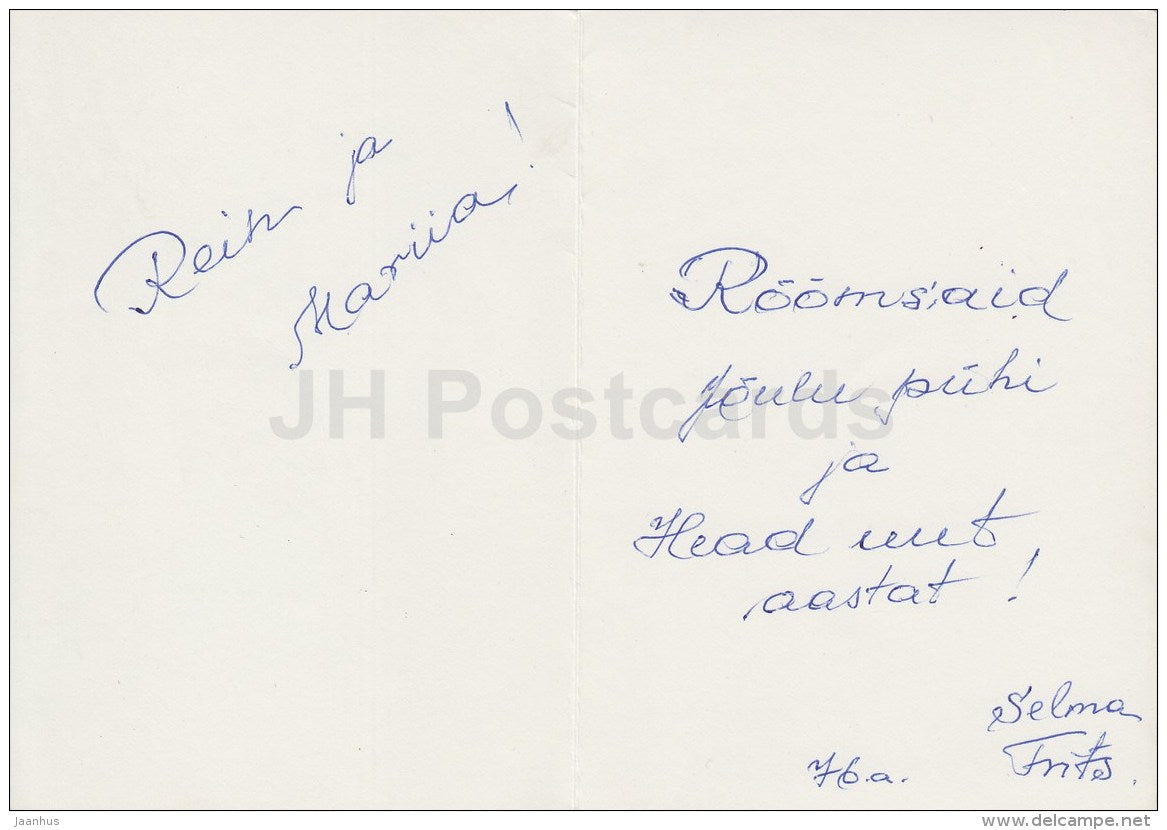 Rein ja
Mariia!
Rõõmsaid
Jõulu pühi
ja
Head uut
aastat!
Selma
Frits.
76.a.
JH Postcards
Jaanhus
www.delcampe.net